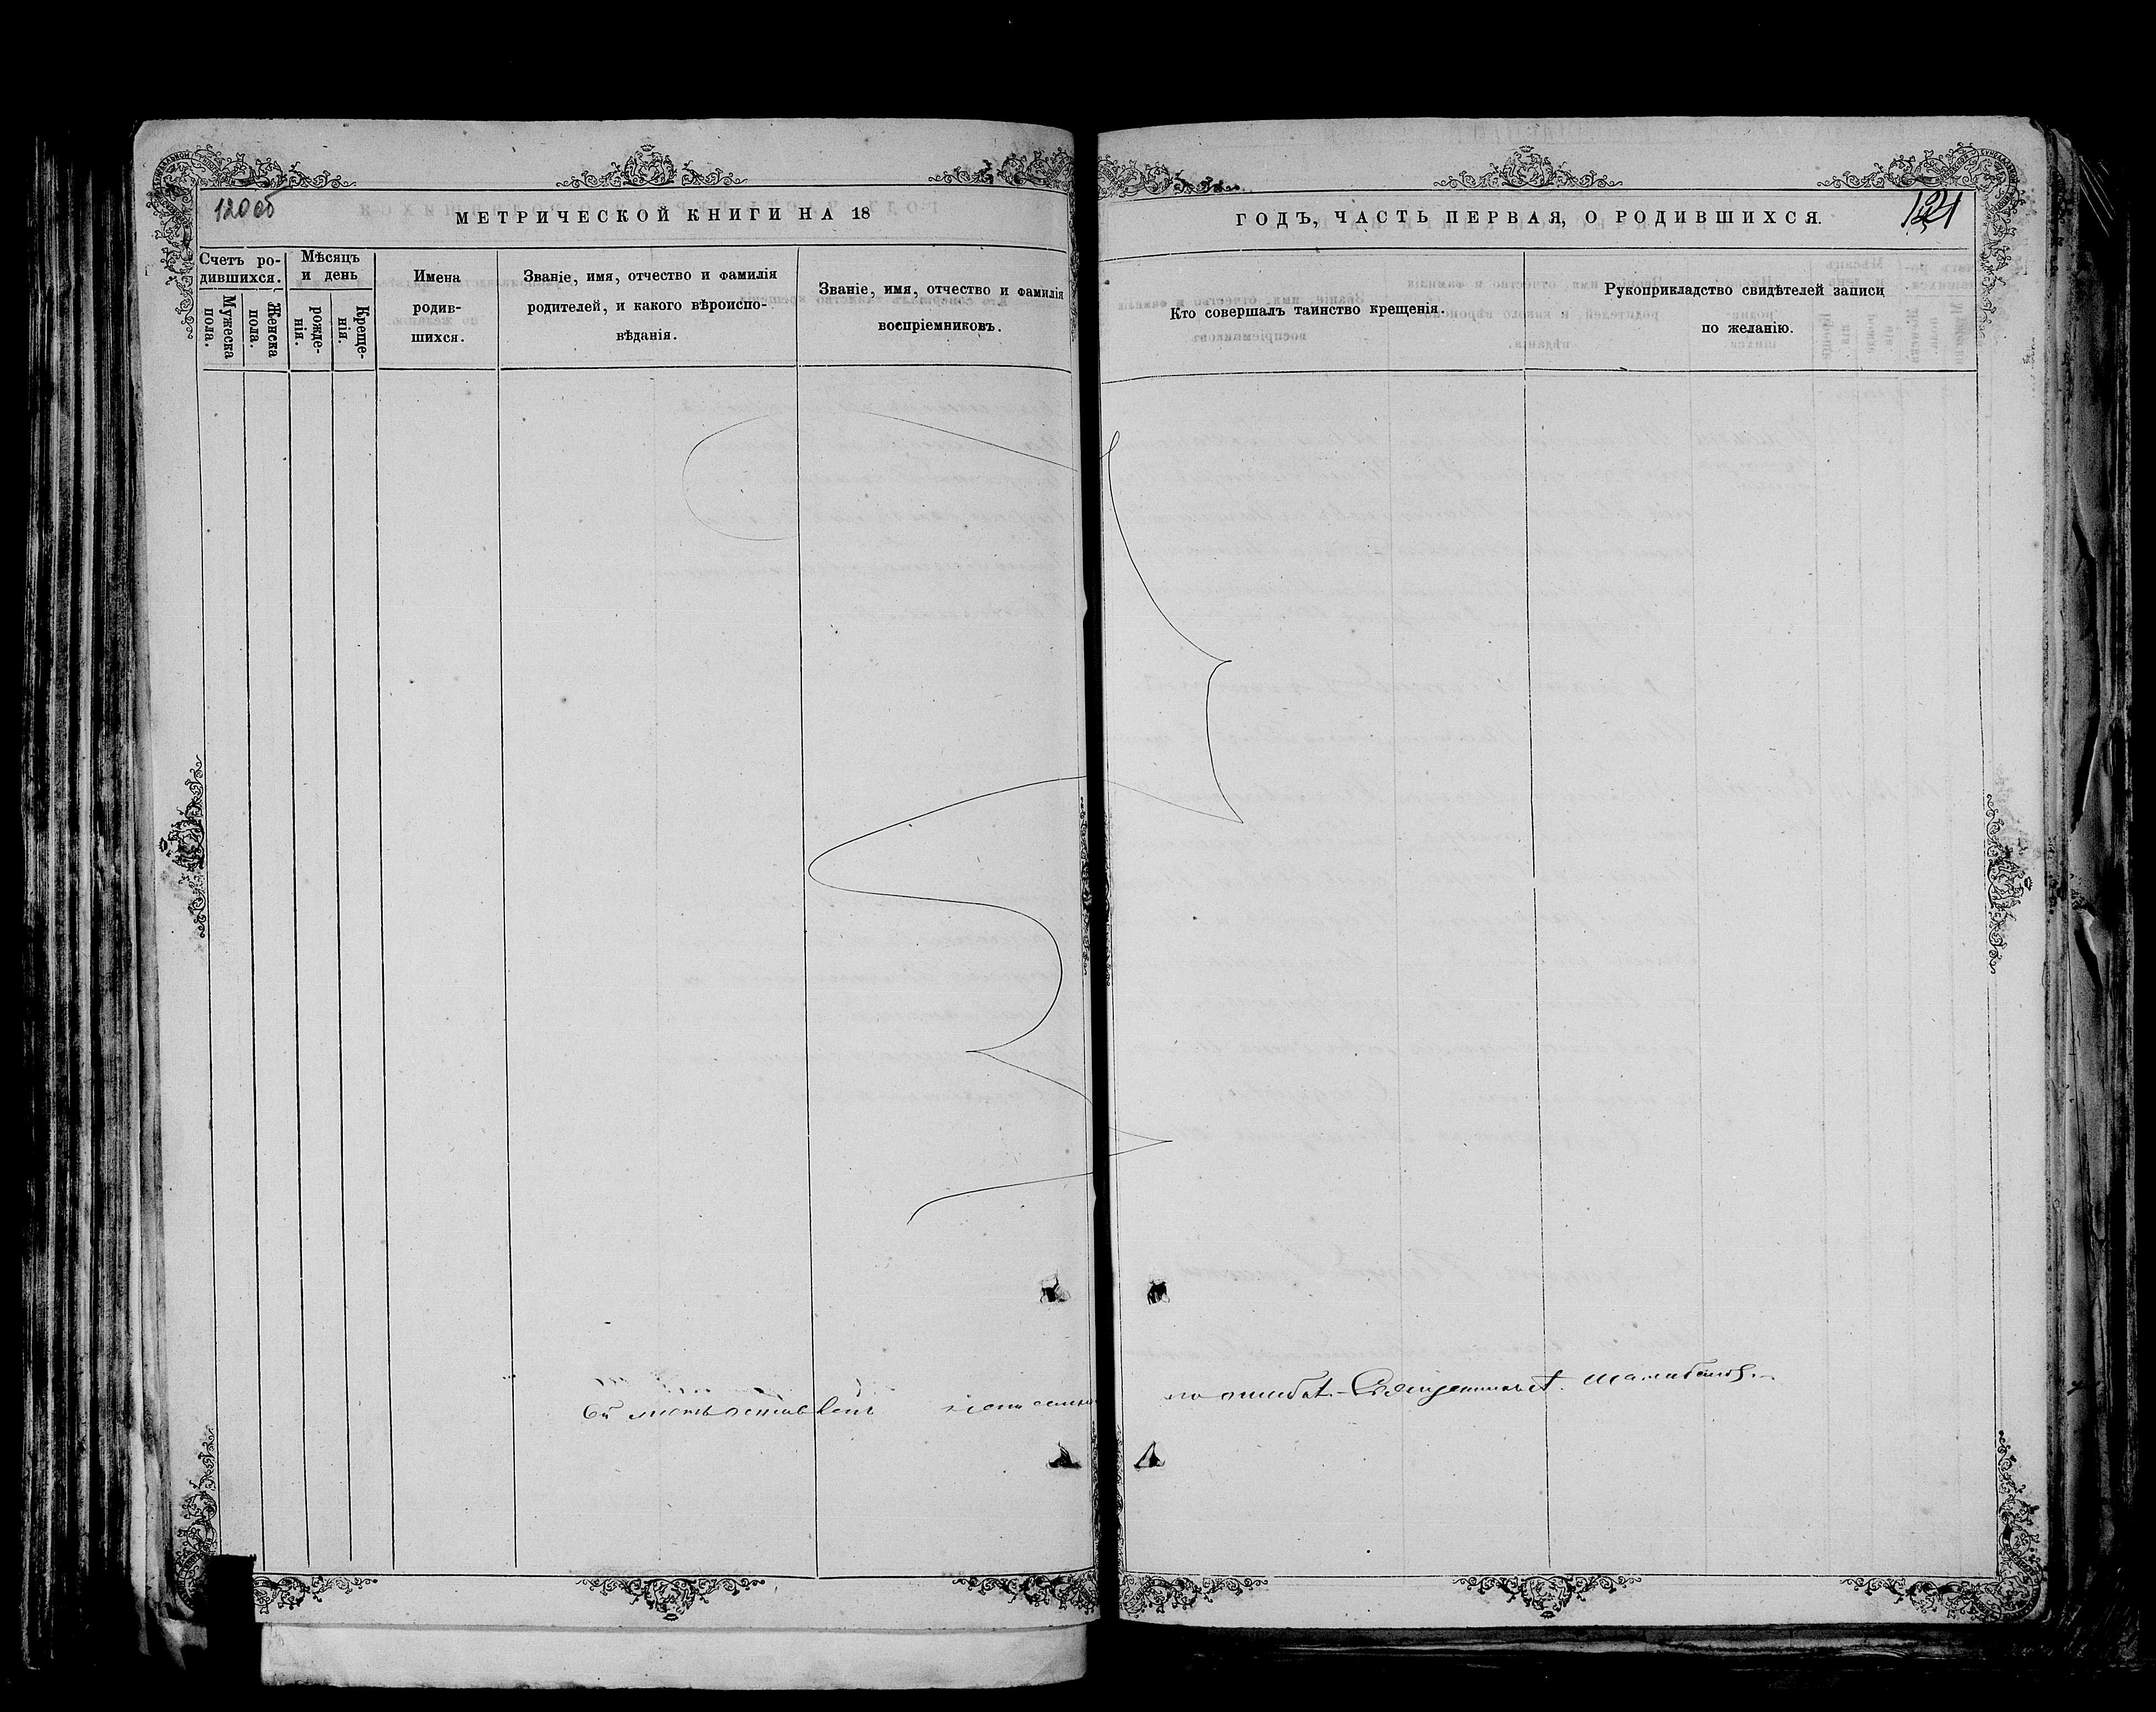 120об
МЕТРИЧЕСКОЙ КНИГИ НА 18
Счетъ ро-
дившихся.
Мѣсяцъ
и день
Мужеска
пола.
Женска
пола.
рожде-
нія.
Креще-
нія.
Имена
родив-
шихся.
Званіе, имя, отчество и фамилія
родителей, и какого вѣроиспо-
вѣданія.
Званіе, имя, отчество и фамилія
воспріемниковъ.
ГОДЪ, ЧАСТЬ ПЕРВАЯ, О РОДИВШИХСЯ.
121
Кто совершалъ таинство крещенія.
Рукоприкладство свидѣтелей записи
по желанію.
Сей листъ оставленъ
по ошибкѣ. Священникъ